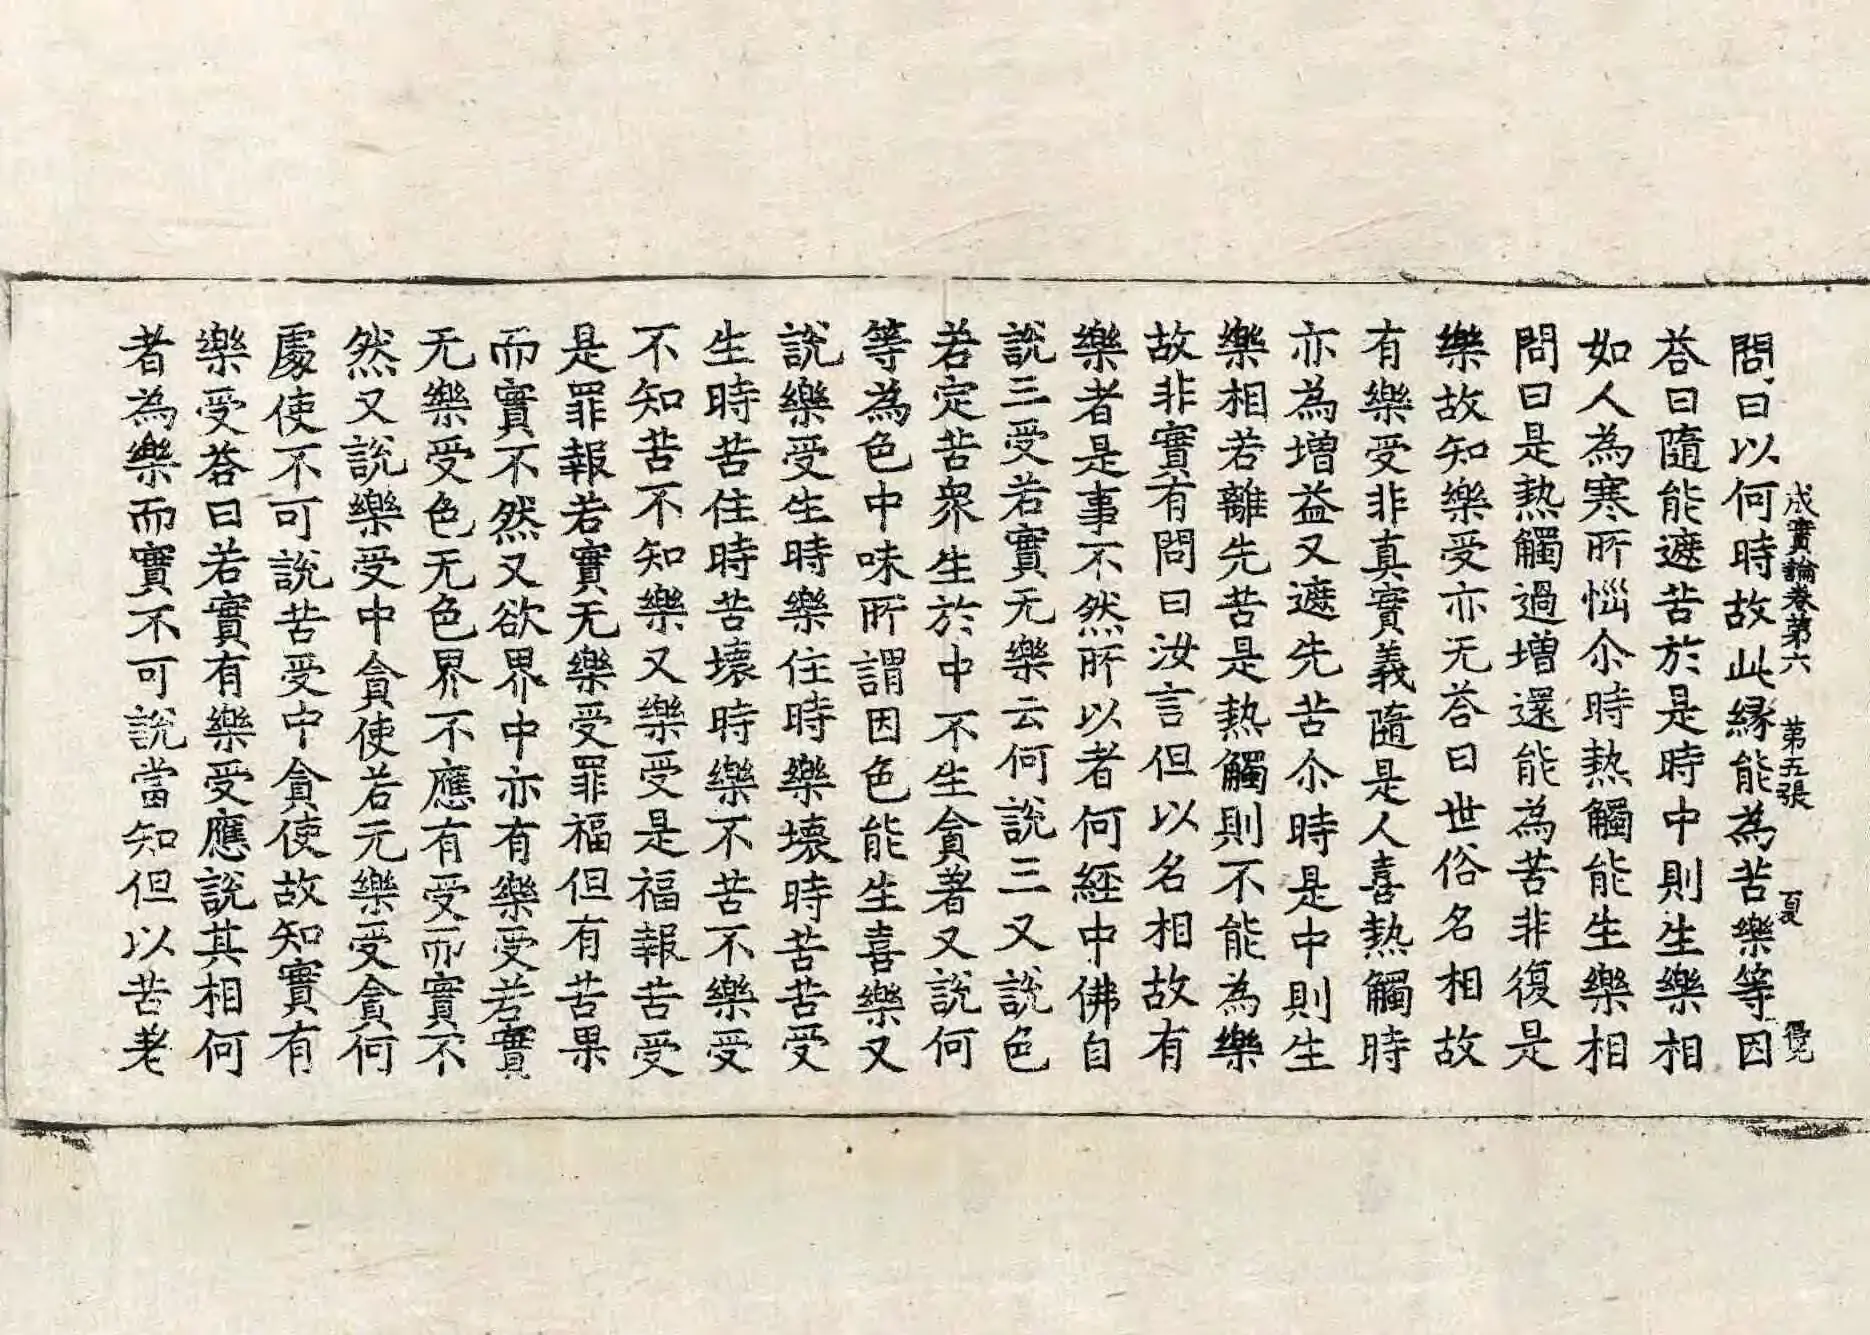 成實論卷第六 第五張 夏 得允
問曰以何時故此縁能為苦樂等因
荅曰隨能遮苦於是時中則生樂相
如人為寒所惱尒時熱觸能生樂相
問曰是熱觸過增還能為苦非復是
樂故知樂受亦无荅曰世俗名相故
有樂受非真實義隨是人喜熱觸時
亦為增益又遮先苦尒時是中則生
樂相若離先苦是熱觸則不能為樂
故非實有問曰汝言但以名相故有
樂者是事不然所以者何經中佛自
說三受若實无樂云何說三又說色
若定苦衆生於中不生貪著又說何
等為色中味所謂因色能生喜樂又
說樂受生時樂住時樂壞時苦苦受
生時苦住時苦壞時樂不苦不樂受
不知苦不知樂又樂受是福報苦受
是罪報若實无樂受罪福但有苦果
而實不然又欲界中亦有樂受若實
无樂受色无色界不應有受而實不
然又說樂受中貪使若无樂受貪何
處使不可說苦受中貪使故知實有
樂受荅曰若實有樂受應說其相何
者為樂而實不可說當知但以苦差